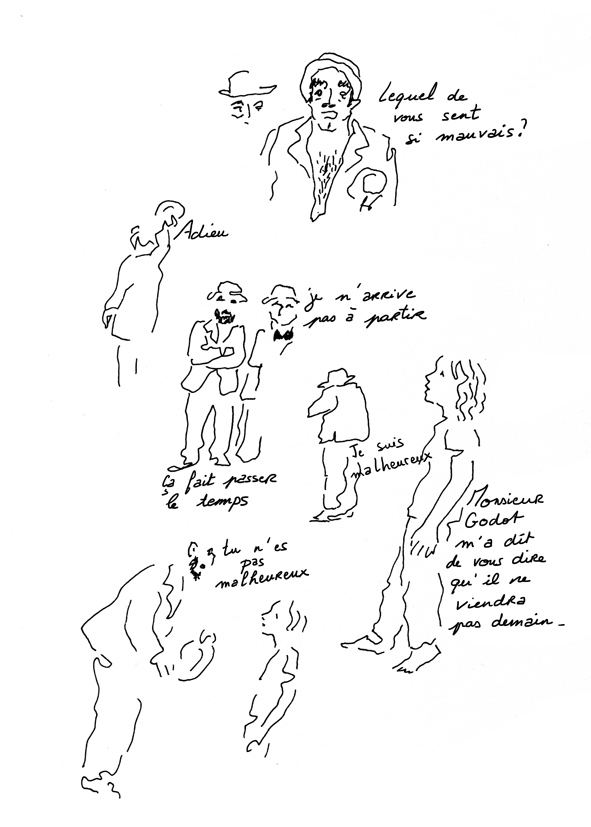 Lequel de
vous sent
si mauvais?
Adieu
je n'arrive
pas à partir
Ça fait passer
le temps
Je suis
malheureux
Monsieur
Godot
m'a dit
de vous dire
qu'il ne
viendra
pas demain_
tu n'es
pas
malheureux